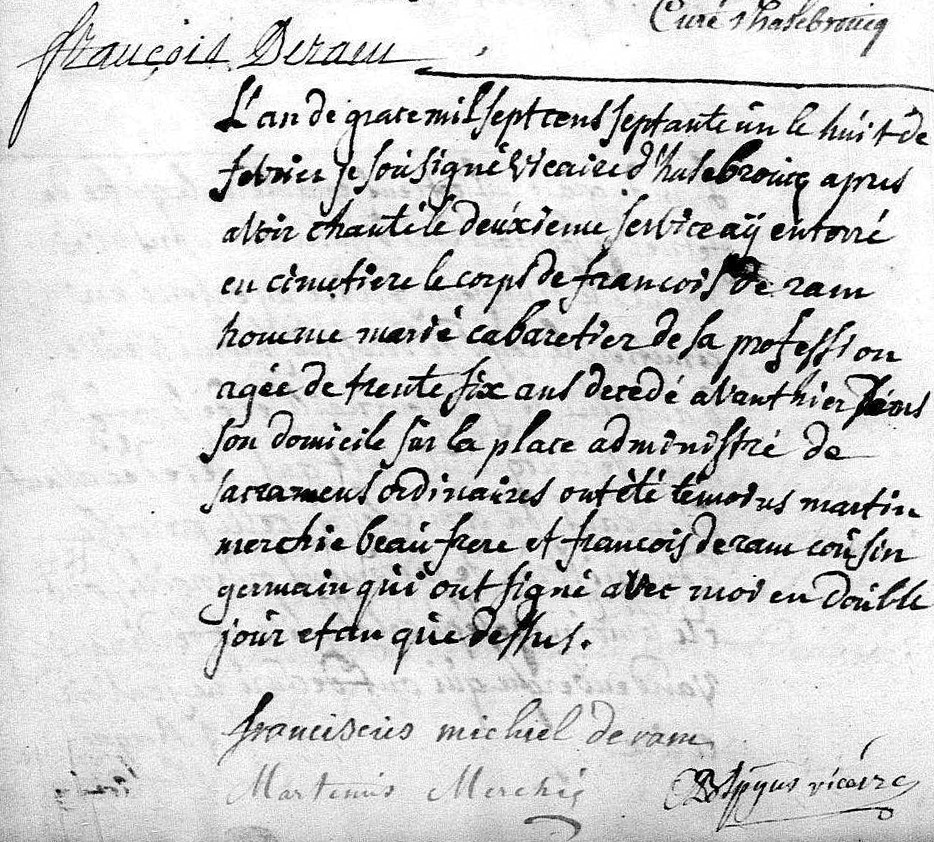 Curé d'hasebroucq
françois Deram
L'an de grace mil sept cens septante ún le húit de
febvrier je soúsigné vicaire d'hasebroúcq apres
avoir chanté le deúxieme service aÿ enterré
en cimetiere le corps de francois De ram
homme marié cabaretier de sa profession
agée de trente six ans decedé avanthier dans
son domicile súr la place administré de
sacramens ordinaires ont été temoins martin
merchie beaú frere et francois de ram coúsin
germain qúi ont signé avec moi en doúble
joúr et an qúe dessús.
franciscús michiel de ram
Martinus Merchie
vicaire